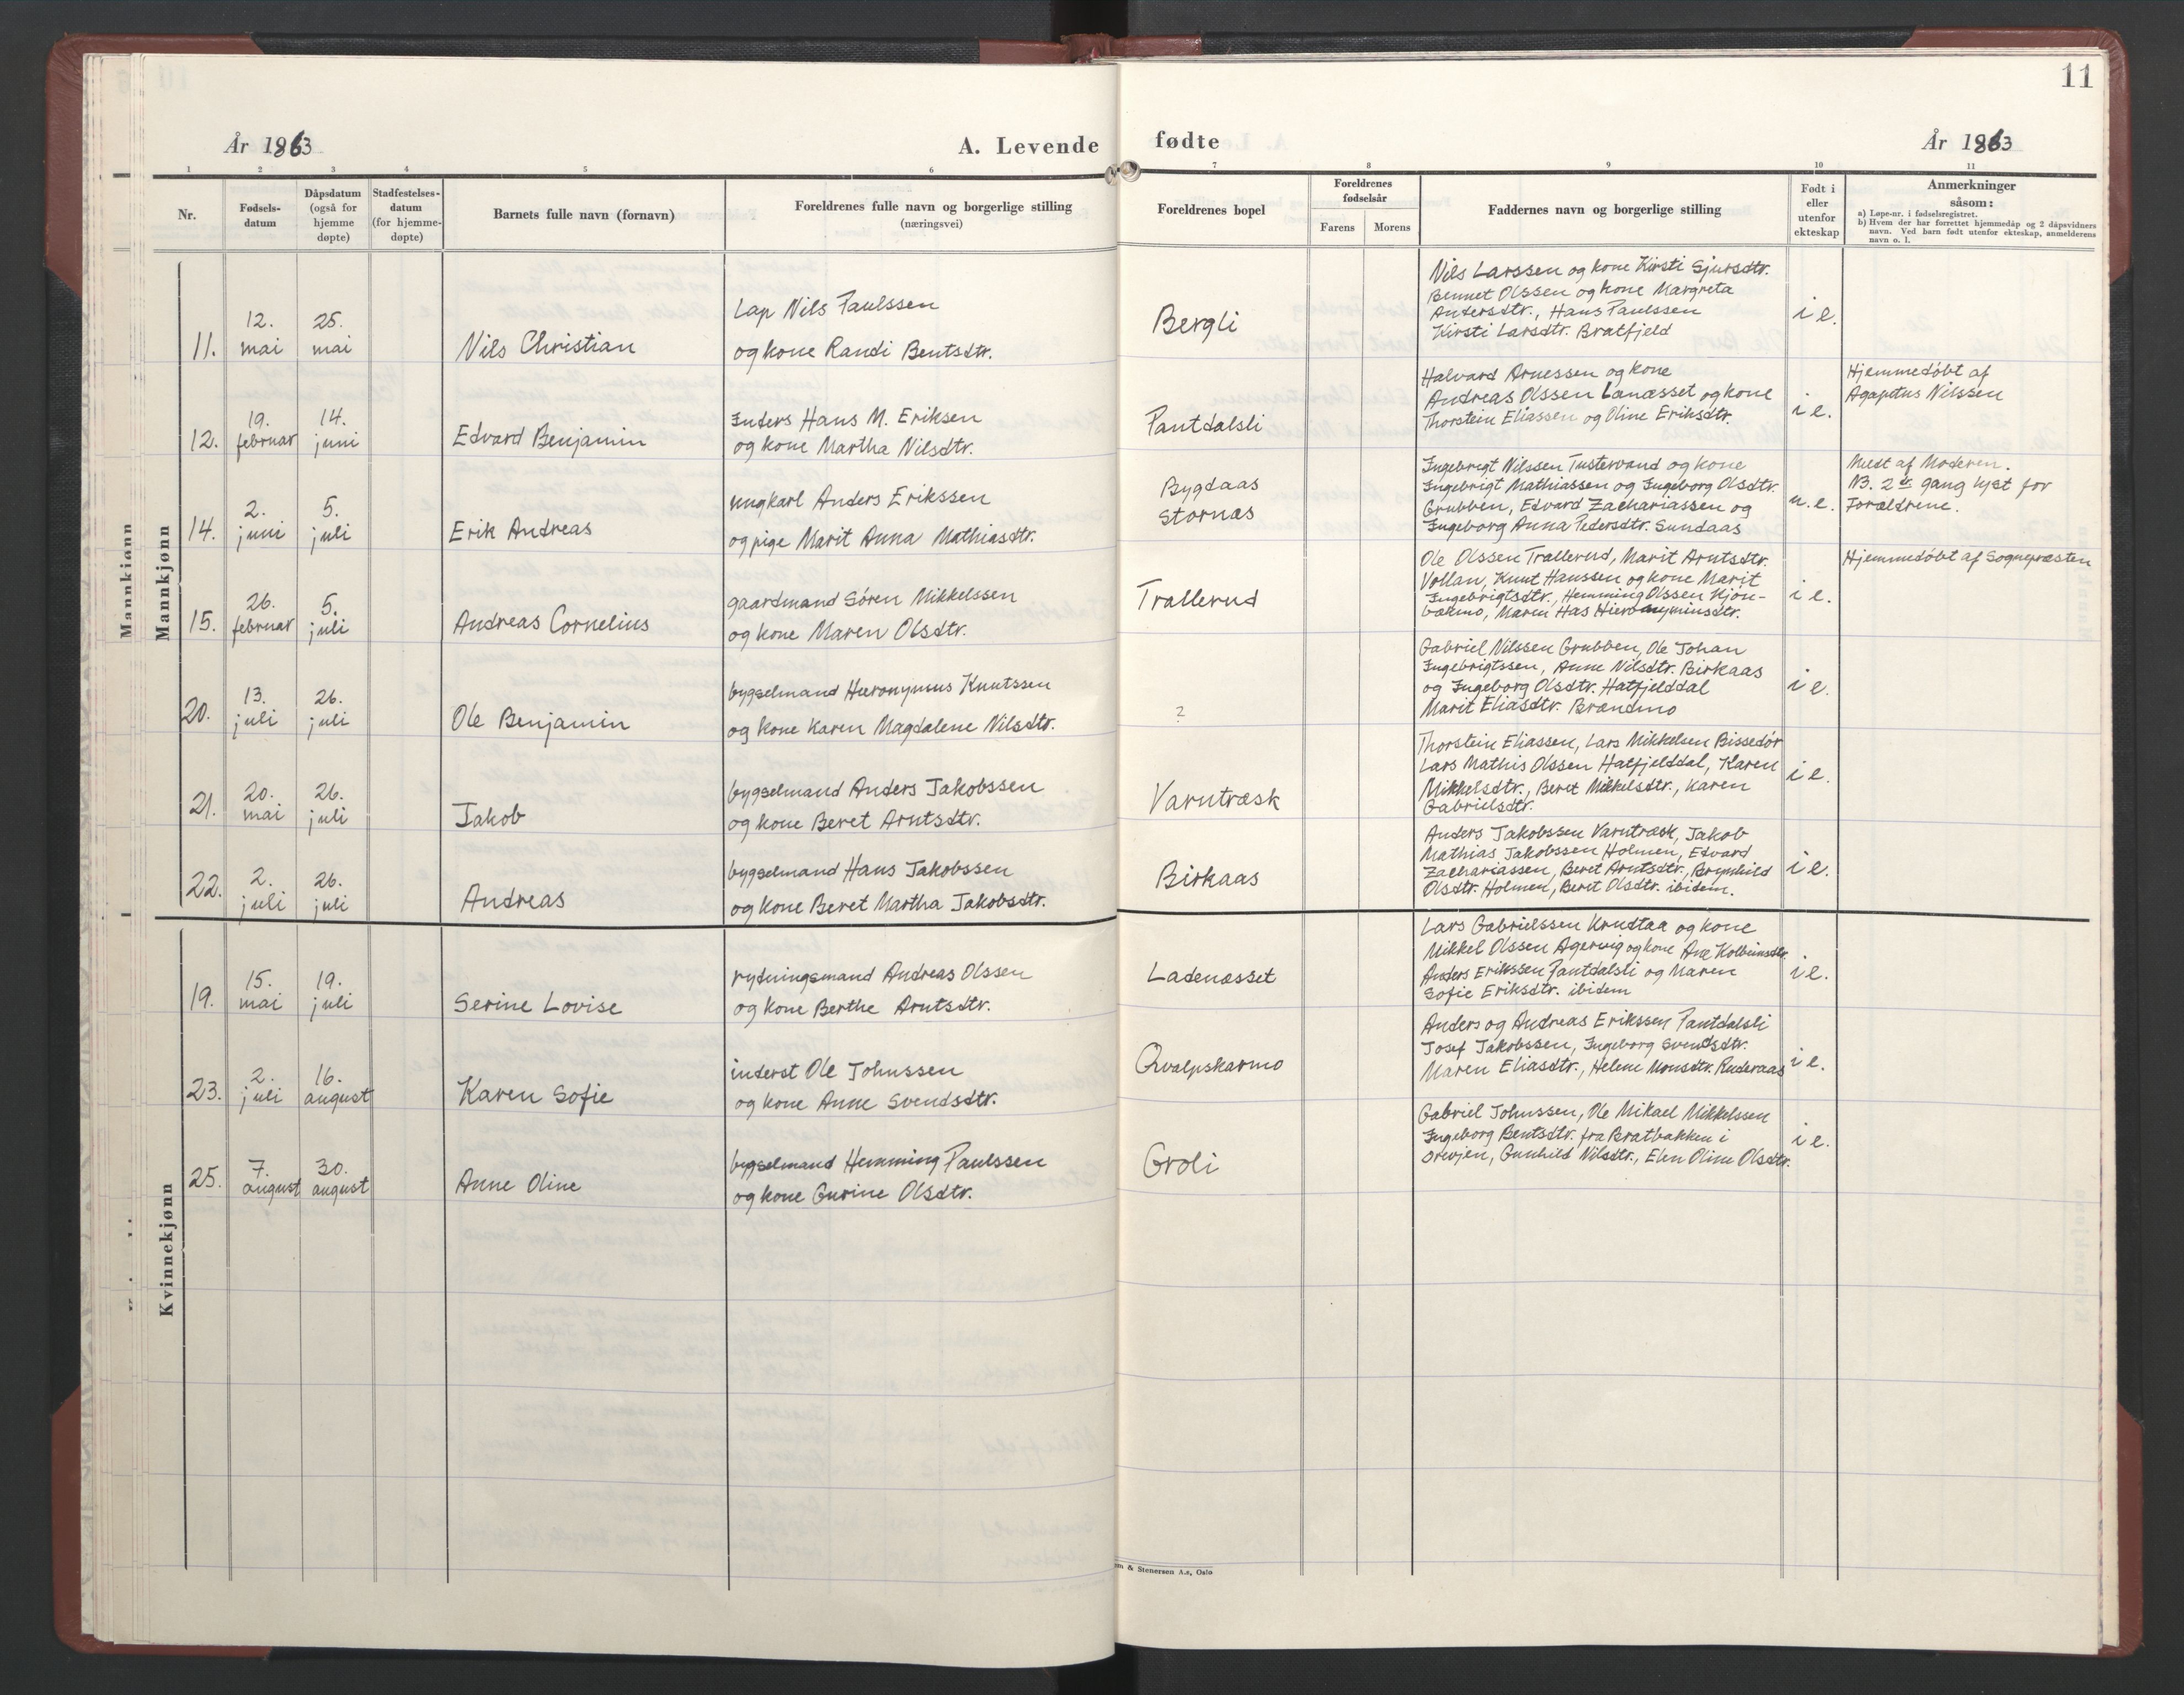 11
År 1863
A. Levende fødte
År 1863
1 2 3 4 5 6 7 8 9 10 11
Nr.
Fødsels-
datum
Dåpsdatum
(også for
hjemme
døpte)
Stadfestelses-
datum
(for hjemme-
døpte)
Barnets fulle navn (fornavn)
Foreldrenes fulle navn og borgerlige stilling
(næringsvei)
Foreldrenes bopel
Foreldrenes
fødselsår
Farens Morens
Faddernes navn og borgerlige stilling
Født i
eller
utenfor
ekteskap
Anmerkninger
såsom:
a) Løpe-nr. i fødselsregistret.
b) Hvem der har forrettet hjemmedåp og 2 dåpsvidners
navn. Ved barn født utenfor ekteskap, anmelderens
navn o. l.
Mannkjønn
Mannkjønn
11.
12.
mai
25.
mai
Nils Christian
Lap Nils Paulssen
og kone Randi Bentsdtr.
Bergli
Nils Larssen og kone Kirsti Sjursdtr.
Bennet Olssen og kone Margreta
Andersdtr., Hans Paulssen
Kirsti Larsdtr. Bratfjeld
i e.
12.
19.
februar
14.
juni
Edvard Benjamin
Inders Hans M. Eriksen
og kone Martha Nilsdtr.
Pantdalsli
Halvard Arnessen og kone
Andreas Olssen Lanæsset og kone
Thorstein Eliassen og Oline Eriksdtr.
i e.
Hjemmedöbt af
Agapetus Nilssen
14.
2.
juni
5.
juli
Erik Andreas
ungkarl Anders Erikssen
og pige Marit Anna Mathiasdtr.
Bygdaas
Stornæs
Ingebrigt Nilssen Tustervand og kone
Ingebrigt Mathiassen og Ingeborg Olsdtr.
Grubben, Edvard Zachariassen og
Ingeborg Anna Pedersdtr. Sundaas
u. e.
Meldt af Moderen.
NB. 2den gang lyst for
Forældrene.
15.
26.
februar
5.
juli
Andreas Cornelius
gaardmand Sören Mikkelssen
og kone Maren Olsdtr.
Trallerud
Ole Olssen Trallerud, Marit Arntsdtr.
Vollan, Knut Hanssen og kone Marit
Ingebrigtsdtr., Hemming Olssen Kjøn-
bækmo, Maren Has Hieronyminsdtr.
i e.
Hjemmedöbt af Sognepræsten
20.
13.
juli
26.
juli
Ole Benjamin
bygselmand Hieronymus Knutssen
og kone Karen Magdalene Nilsdtr.
?
Gabriel Nilssen Grubben, Ole Johan
Ingebrigtssen, Anne Nilsdtr. Birkaas
og Ingeborg Olsdtr. Hatfjelddal
Marit Eliasdtr. Brændmo
i e.
21.
20.
mai
26.
juli
Jakob
bygselmand Anders Jakobssen
og kone Beret Arntsdtr.
Varntræsk
Thorstein Eliassen, Lars Mikkelsen Bissedör
Lars Mathis Olssen Hatfjelddal, Karen
Mikkelsdtr., Beret Mikkelsdtr., Karen
Gabrielsdtr.
i e.
22.
2.
juli
26.
juli
Andreas
bygselmand Hans Jakobssen
og kone Beret Martha Jakobsdtr.
Birkaas
Anders Jakobssen Varntræsk, Jakob
Mathias Jakobssen Holmen, Edvard
Zachariassen, Beret Arntsdtr., Brynhild
Olsdtr. Holmen, Beret Olsdtr. ibidem.
i e.
Kvinnekjønn
19.
15.
mai
19.
juli
Serine Lovise
rydningsmand Andreas Olssen
og kone Berthe Arntsdtr.
Ladenæsset
Lars Gabrielssen Krudtaa og kone
Mikkel Olssen Agervig og kone Ane Kolbeinsdtr.
Anders Erikssen Pantdalsli og Maren
Sofie Eriksdtr. ibidem
i e.
23.
2.
juli
16.
august
Karen Sofie
inderst Ole Johnssen
og kone Anne Svendsdtr.
Qvalpskarmo
Anders og Andreas Erikssen Pantdalsli
Josef Jakobssen, Ingeborg Svendsdtr.
Maren Eliasdtr., Helene Monsdtr. Ruderaas
i e.
25.
7.
august
30.
august
Anne Oline
bygselmand Hemming Paulssen
og kone Gurine Olsdtr.
Groli
Gabriel Johnssen, Ole Mikael Mikkelssen
Ingeborg Bentsdtr. fra Bratbakken i
Orevjen, Gunhild Nilsdtr., Elen Oline Olsdtr.
i e.
& Stenersen A.s, Oslo